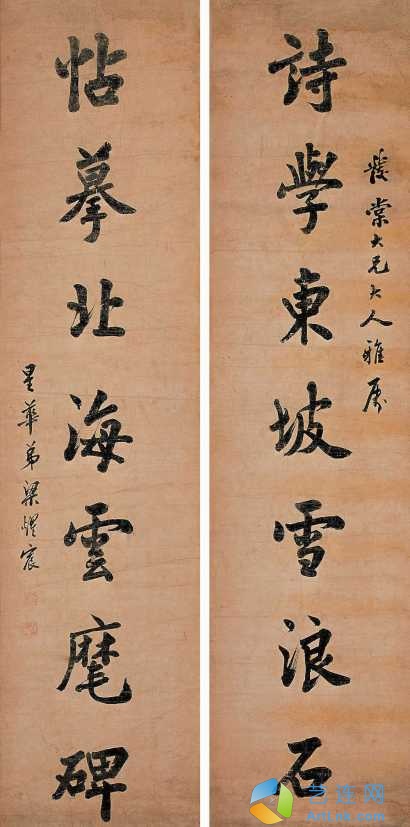 詩學東坡雪浪石
棠大兄大人雅屬
帖摹北海雲麾碑
星華弟梁宸
艺连网